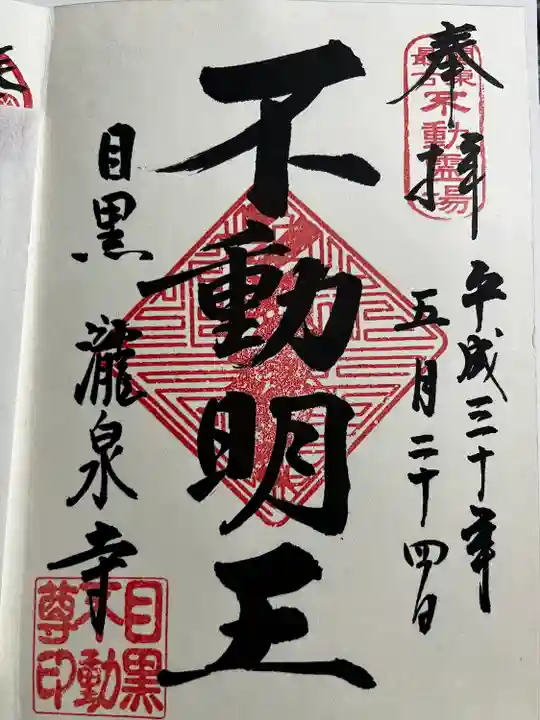 奉拝
関東
最古
不動霊場
平成三十年
五月二十四日
不動明王
目黒 瀧泉寺
目黒
不動
尊印